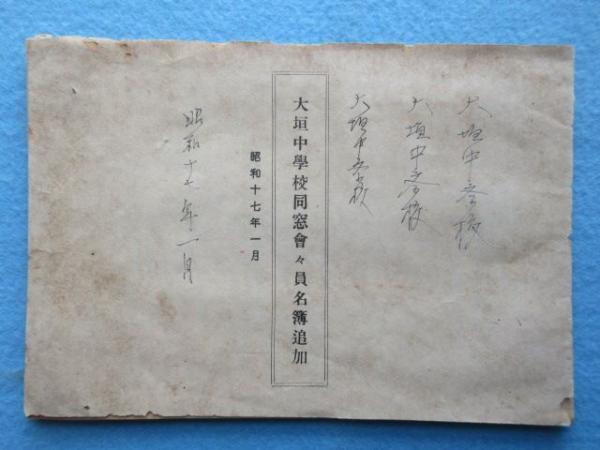 大垣中学校
大垣中学校
大垣中学校
大垣中學校同窓會々員名簿追加
昭和十七年一月
昭和十七年一月